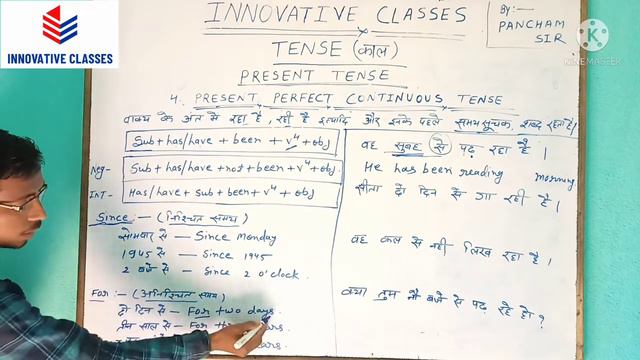 INNOVATIVE CLASSES
INNOVATIVE CLASSES
By:-
PANCHAM
SIR
KINEMASTER
TENSE (काल)
PRESENT TENSE
4. PRESENT PERFECT CONTINUOUS TENSE
वाक्य के अंत में रहा है, रही है इत्यादि और इनके पहले समय सूचक शब्द रहता है।
Sub + has/have + been + v4 + obj
Neg- Sub + has/have + not + been + v4 + obj.
INT- Has/have + sub + been + v4 + obj
Since:- (निश्चित समय)
सोमवार से — Since Monday
1945 से — Since 1945
2 बजे से — Since 2 o'clock.
For:- (अनिश्चित समय)
दो दिन से — For two days.
तीन साल से — For
वह सुबह से पढ़ रहा है।
He has been reading morning
सीता दो दिन से गा रही है।
वह कल से नहीं लिख रहा है।
क्या तुम नौ बजे से पढ़ रहे हो?